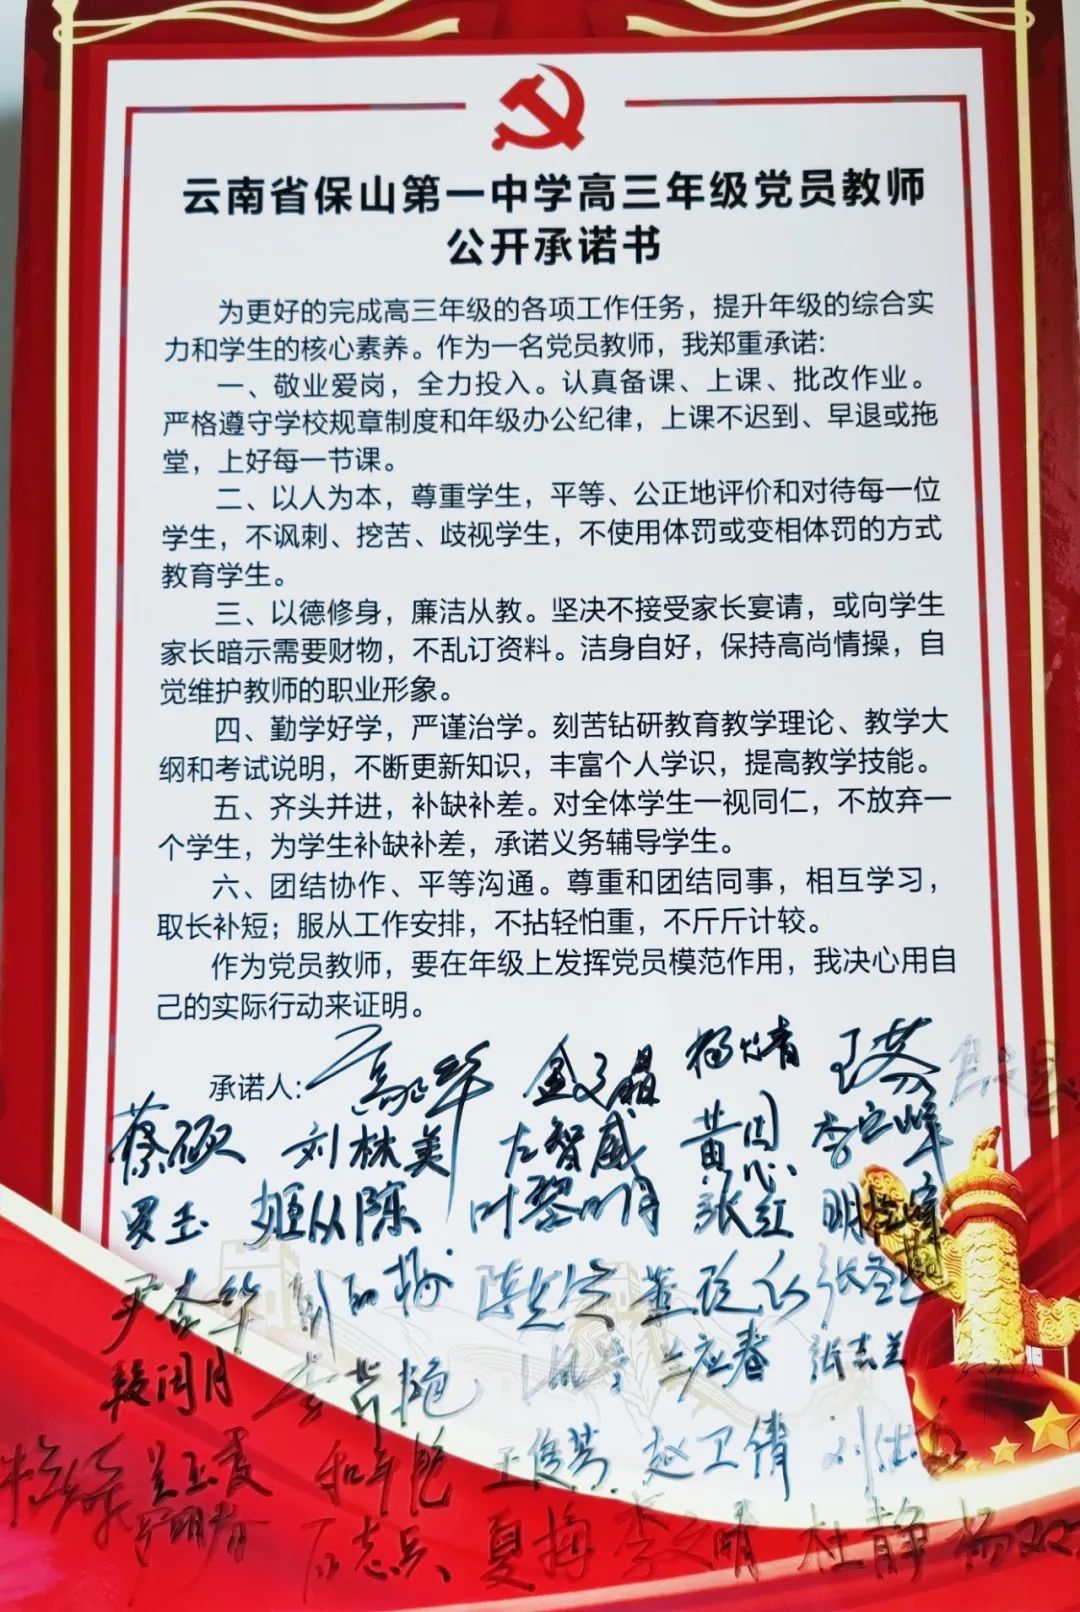 云南省保山第一中学高三年级党员教师
公开承诺书
为更好的完成高三年级的各项工作任务，提升年级的综合实
力和学生的核心素养。作为一名党员教师，我郑重承诺:
一、敬业爱岗，全力投入。认真备课、上课、批改作业。
严格遵守学校规章制度和年级办公纪律，上课不迟到、早退或拖
堂，上好每一节课。
二、以人为本，尊重学生，平等、公正地评价和对待每一位
学生，不讽刺、挖苦、歧视学生，不使用体罚或变相体罚的方式
教育学生。
三、以德修身，廉洁从教。坚决不接受家长宴请，或向学生
家长暗示需要财物，不乱订资料。洁身自好，保持高尚情操，自
觉维护教师的职业形象。
四、勤学好学，严谨治学。刻苦钻研教育教学理论、教学大
纲和考试说明，不断更新知识，丰富个人学识，提高教学技能。
五、齐头并进，补缺补差。对全体学生一视同仁，不放弃一
个学生，为学生补缺补差，承诺义务辅导学生。
六、团结协作、平等沟通。尊重和团结同事，相互学习，
取长补短；服从工作安排，不拈轻怕重，不斤斤计较。
作为党员教师，要在年级上发挥党员模范作用，我决心用自
己的实际行动来证明。
承诺人: 金文晶 杨婧 王芬
蔡硕 刘林美 左智威
罗玉 姬从陈 叶黎明 张红
尹杏华
段闰月 兰应春 张志美
和年艳 王俊芳 赵卫倩
石志兵 夏梅 李文晴 杜静